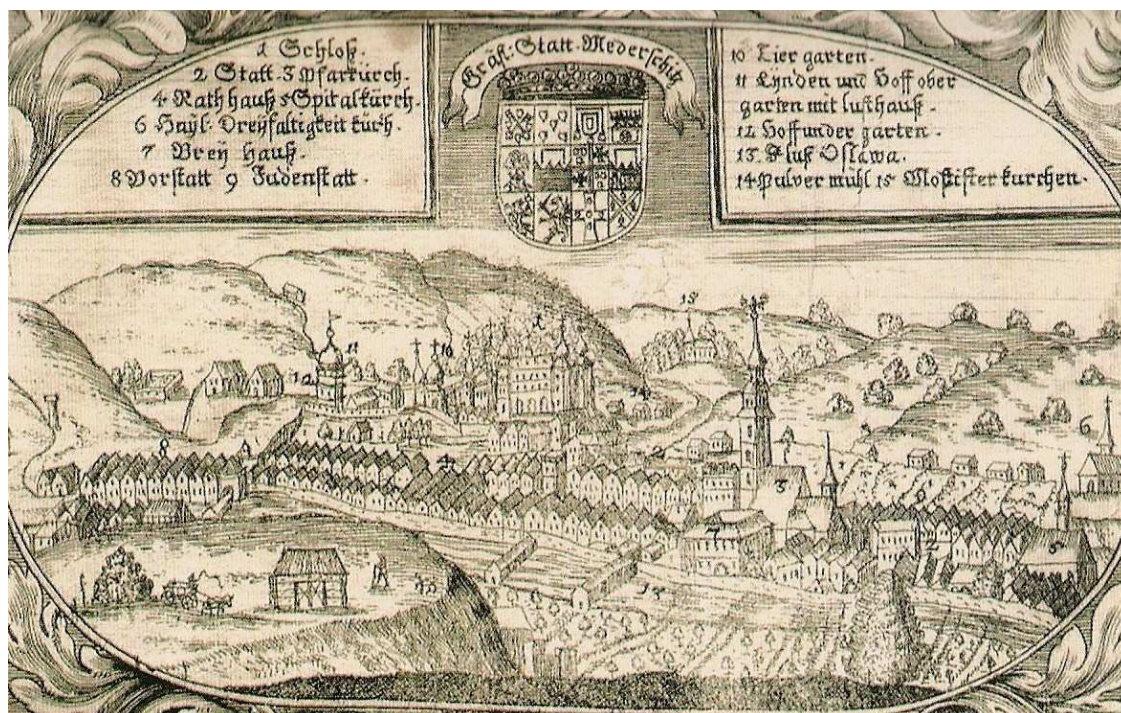 1 Schloß.
2 Statt. 3 Pfarkürch.
4 Rathhauß 5 Spitalkürch.
6 Haÿl: Dreÿfaltigkeit kürch.
7 Breÿ hauß.
8 Vorstatt 9 Judenstatt.
Gräfl: Statt. Mederschitz
10 Tier garten.
11 Lÿnden und Hoff ober
garten mit lusthauß.
12 Hoff under garten.
13 Fluß Oslawa.
14 Pulver mühl 15 Mostister kurchen.
15
1
11
10
12
14
6
8
4
3
9
7
2
5
13